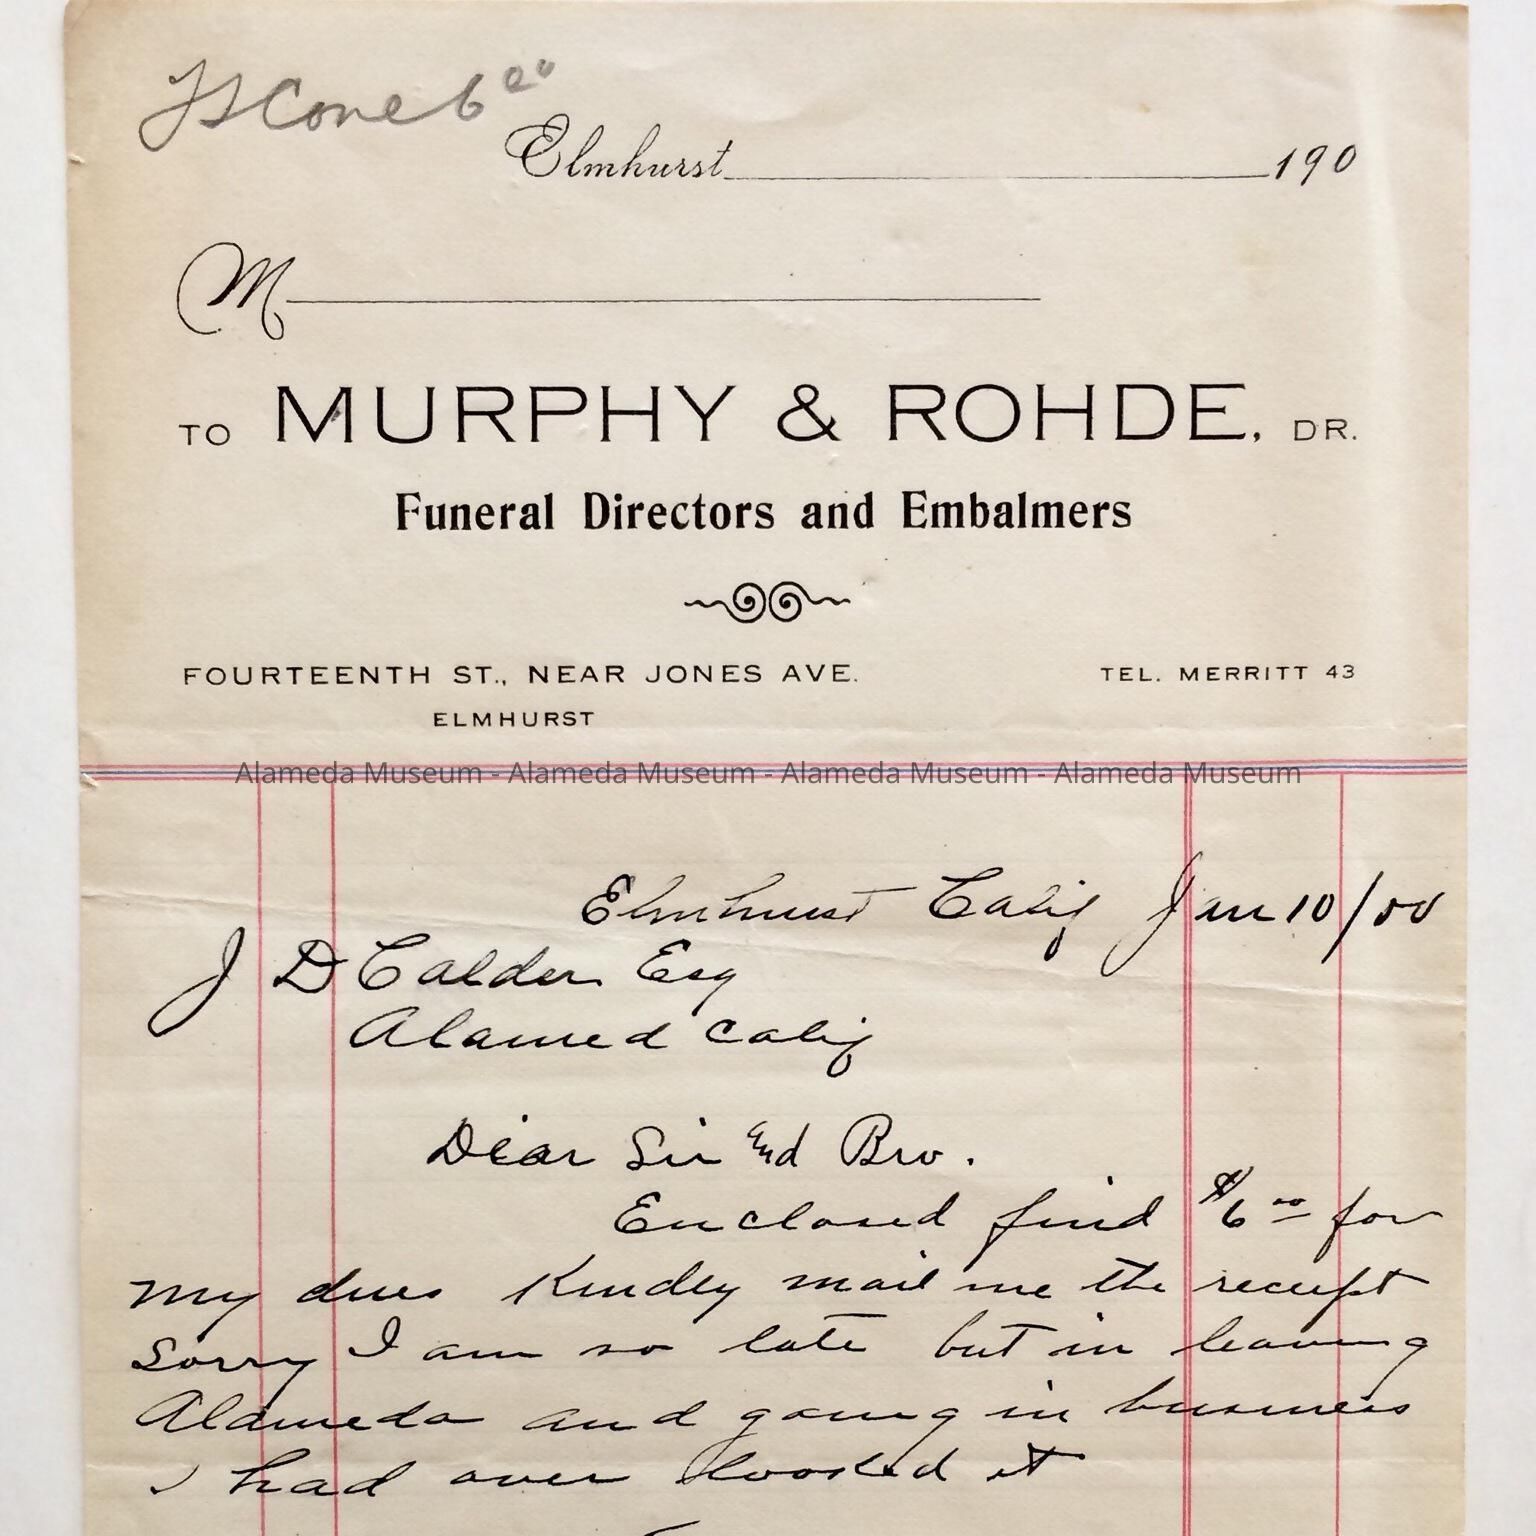 Cone 6 00
Elmhurst 190
M
TO MURPHY & ROHDE, DR.
Funeral Directors and Embalmers
FOURTEENTH ST., NEAR JONES AVE. TEL. MERRITT 43
ELMHURST
Alameda Museum - Alameda Museum - Alameda Museum - Alameda Museum
Elmhurst Calif Jan 10/00
J D Calder Esq
Alamed Calif
Dear Sir and Bro.
Enclosed find $6 00 for
my dues Kindly mail me the receipt
Sorry I am so late but in leaving
Alameda and going in business
I had over looked it